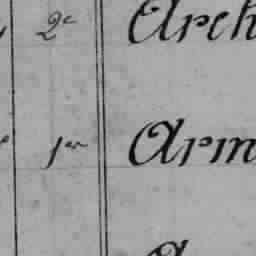 2e Arch
1er Arm